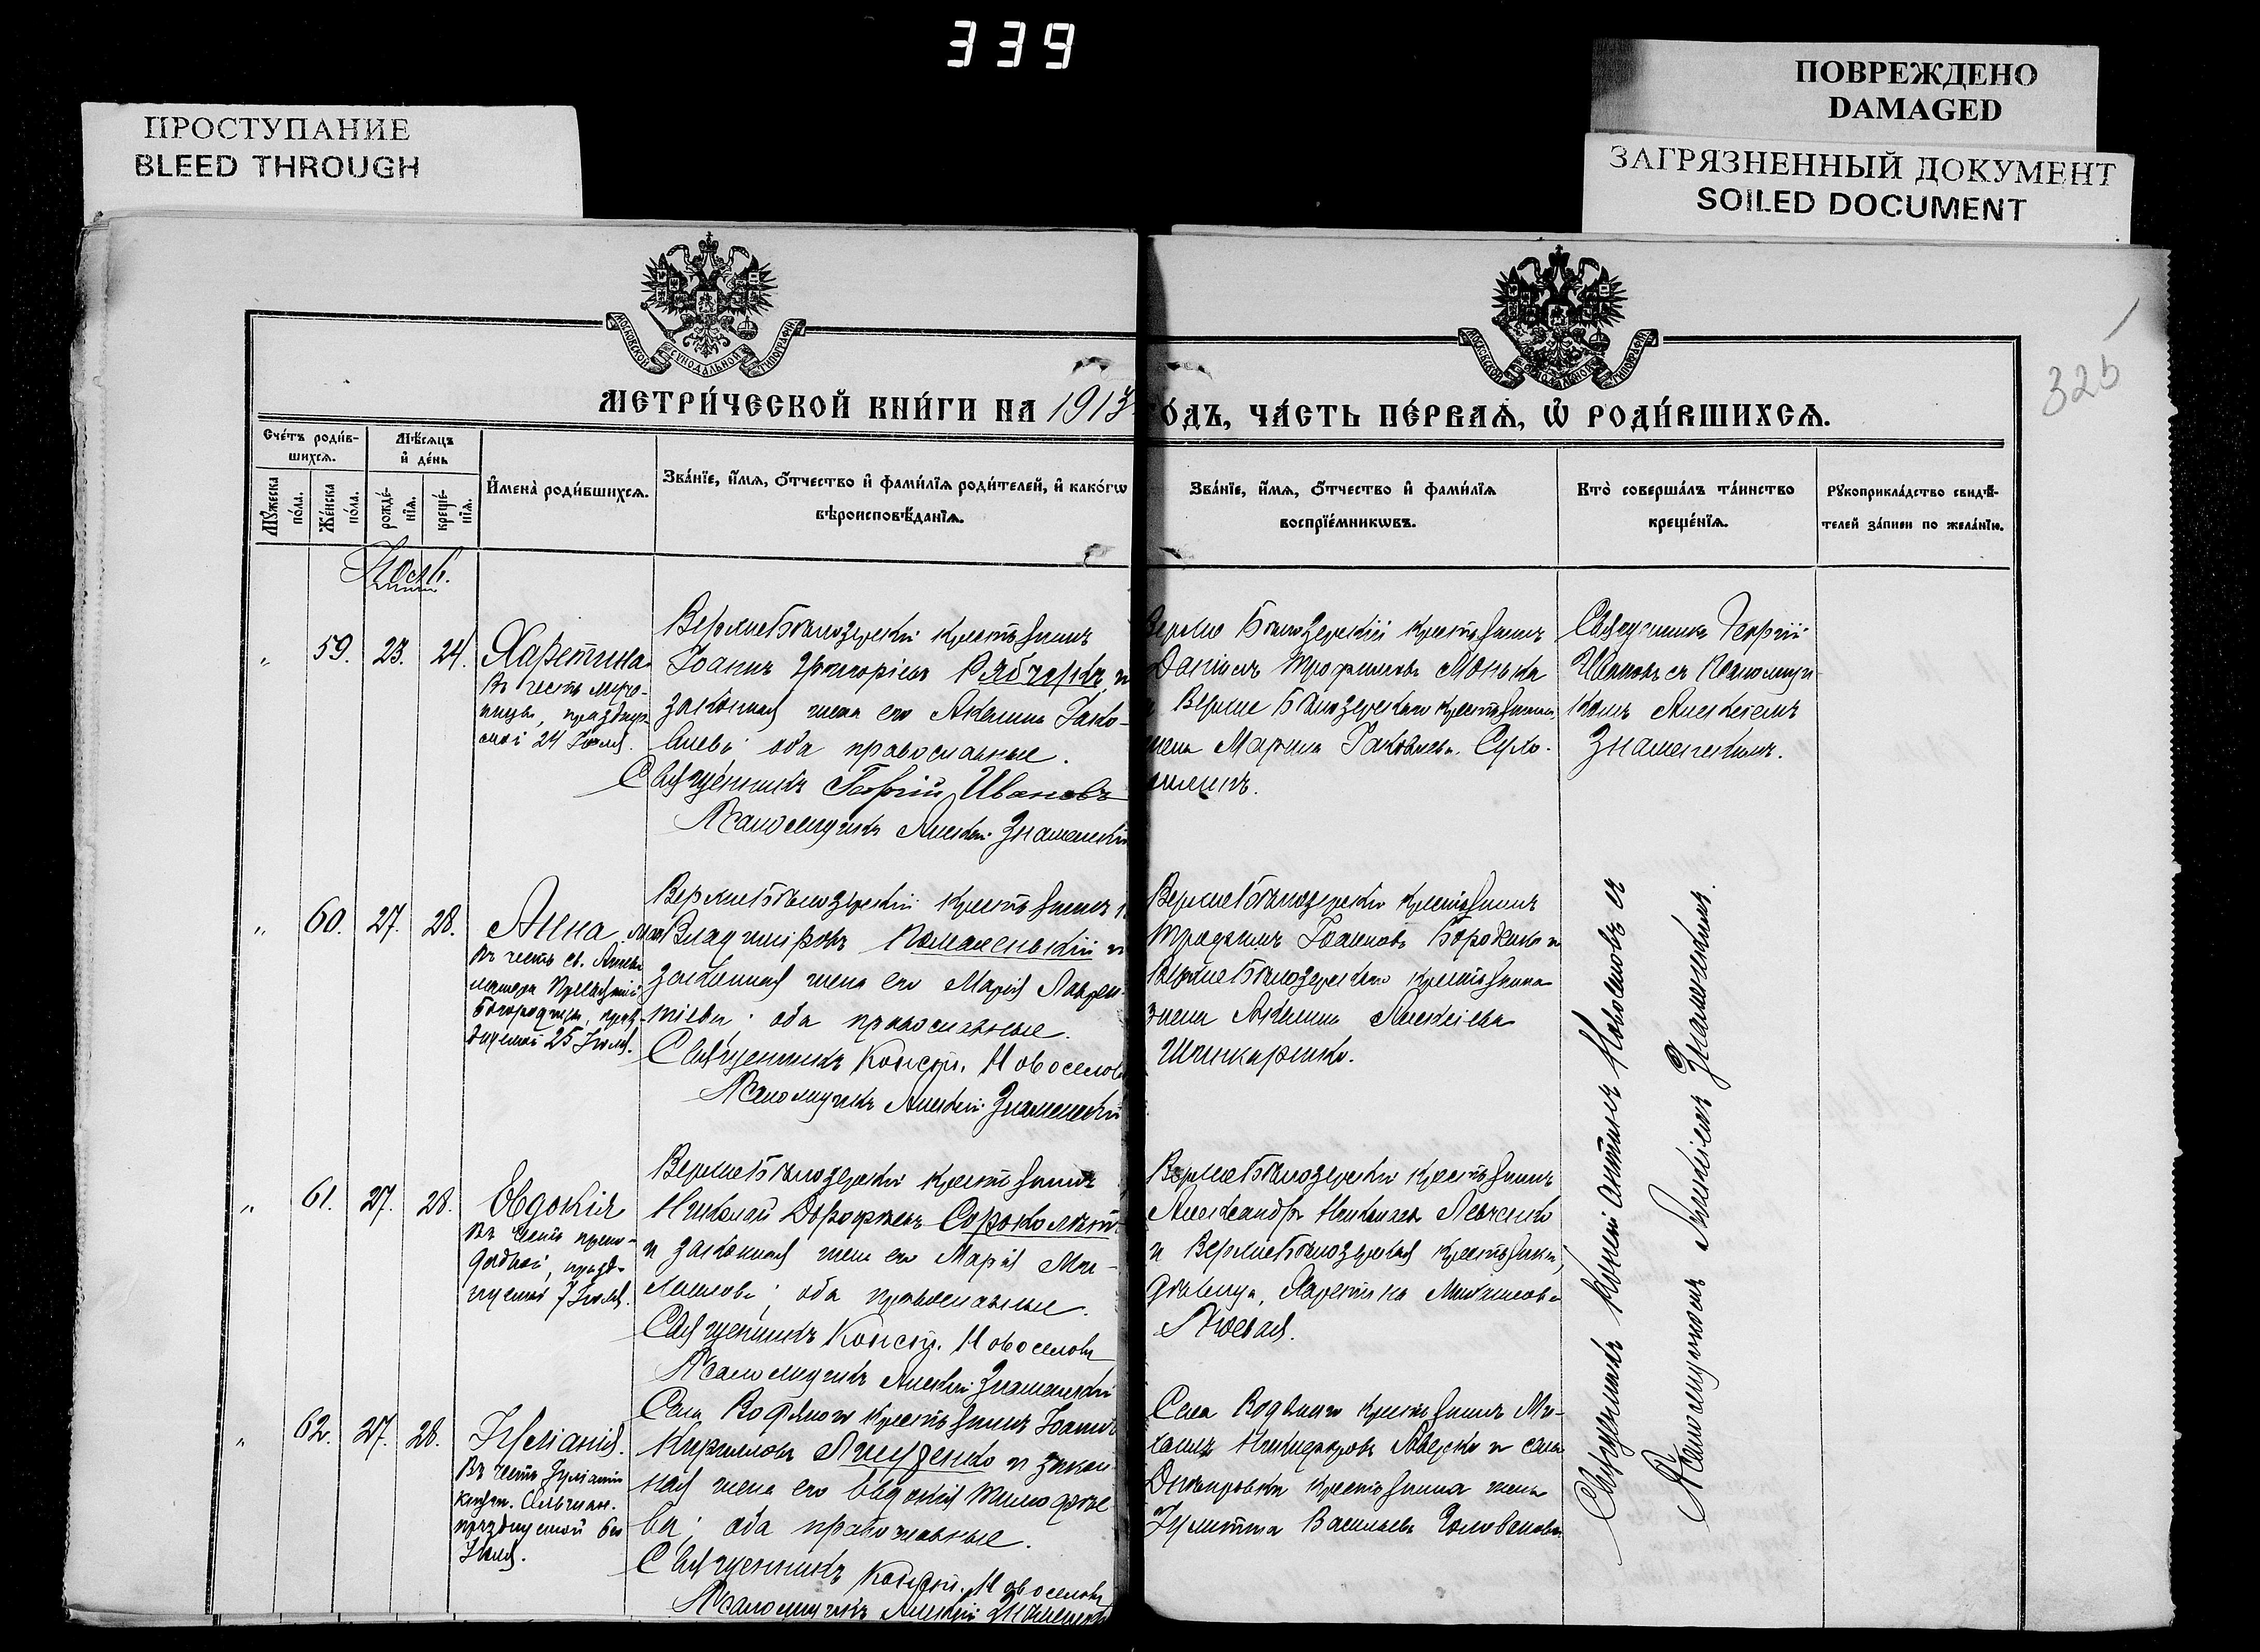 339
ПОВРЕЖДЕНО
DAMAGED
ПРОСТУПАНИЕ
BLEED THROUGH
ЗАГРЯЗНЕННЫЙ ДОКУМЕНТ
SOILED DOCUMENT
МОСКОВСКОЙ СѴНОДАЛЬНОЙ ТИПОГРАФІИ
МОСКОВСКОЙ СѴНОДАЛЬНОЙ ТИПОГРАФІИ
325
МЕТРИ́ЧЕСКОЙ КНИ́ГИ НА 1913
ГО́ДЪ, ЧА́СТЬ ПЕ́РВАѦ, Ѡ҆ РОДИ́ВШИХСѦ.
Сче́тъ роди́в-
шихсѧ.
Мѣ́сѧцъ
и҆ де́нь
Мꙋ́жеска
по́ла.
Же́нска
по́ла.
рожде́-
нїѧ.
креще́-
нїѧ.
И҆мена̀ роди́вшихсѧ.
Зва́нїе, и҆́мѧ, ѻ҆́тчество и҆ фами́лїѧ роди́телей, и҆ како́гѡ
вѣроисповѣ́данїѧ.
Зва́нїе, и҆́мѧ, ѻ҆́тчество и҆ фами́лїѧ
воспрїе́мникѡвъ.
Кто̀ соверша́лъ та́инство
креще́нїѧ.
Рꙋкоприкла́дство свидѣ́-
телей за́писи по жела́нїю.
Іюль.
" 59. 23. 24. Харитина
Въ честь муче-
ницы, празднуе-
мой 24 Іюля.
Верхнебѣлозерскій крестьянинъ
Іоаннъ Григоріевъ Рябченко и
законная жена его Акилина Іако-
влева; оба православные.
Священникъ Георгій Ивановъ
Псаломщикъ Алексѣй Знаменскій
Верхнебѣлозерскій крестьянинъ
Даніилъ Трофимовъ Монька
и Верхнебѣлозерскаго крестьянина
жена Марина Іаковлева
Священникъ Георгій
Ивановъ съ Псаломщи-
комъ Алексѣемъ
Знаменскимъ.
" 60. 27. 28. Анна
Въ честь св. Анны
матери Пресвятой
Богородицы, празд-
нуемой 25 Іюля.
Верхнебѣлозерскій крестьянинъ
Владиміровъ Поманенскій и
законная жена его Марія Лаврен-
тіева; оба православные.
Священникъ Конст. Новоселовъ
Псаломщикъ Алексѣй Знаменскій
Верхнебѣлозерскій крестьянинъ
Іоанновъ Бородинъ и
Верхнебѣлозерскаго крестьянина
жена Акилина Алексіева
Шинкаренко.
Священникъ Константинъ Новоселовъ съ
Псаломщикомъ Алексіемъ Знаменскимъ.
" 61. 27. 28. Евдокія
Въ честь препо-
добной, празд-
нуемой 7 Іюля.
Верхнебѣлозерскій крестьянинъ
Николай Дорофеевъ Сороколѣтъ
и законная жена его Марія
оба православные.
Священникъ Конст. Новоселовъ
Псаломщикъ Алексѣй Знаменскій
Верхнебѣлозерскій крестьянинъ
Александръ Николаевъ Левченко
и Верхнебѣлозерская крестьянка,
дѣвица, Харитина
" 62. 27. 28. Іуліанія.
Въ честь Іуліаніи
княж. Ольшан.
празднуемой 6го
Іюля.
Села Водяного крестьянинъ Іоаннъ
Кирилловъ и закон-
ная жена его Евдокія Тимофее-
ва; оба православные.
Священникъ Конст. Новоселовъ
Псаломщикъ Алексѣй Знаменскій
Села Водяного крестьянинъ Ми-
хаилъ Никифоровъ и села
Днѣпровки крестьянина жена
Іулитта Васильева Головкова.